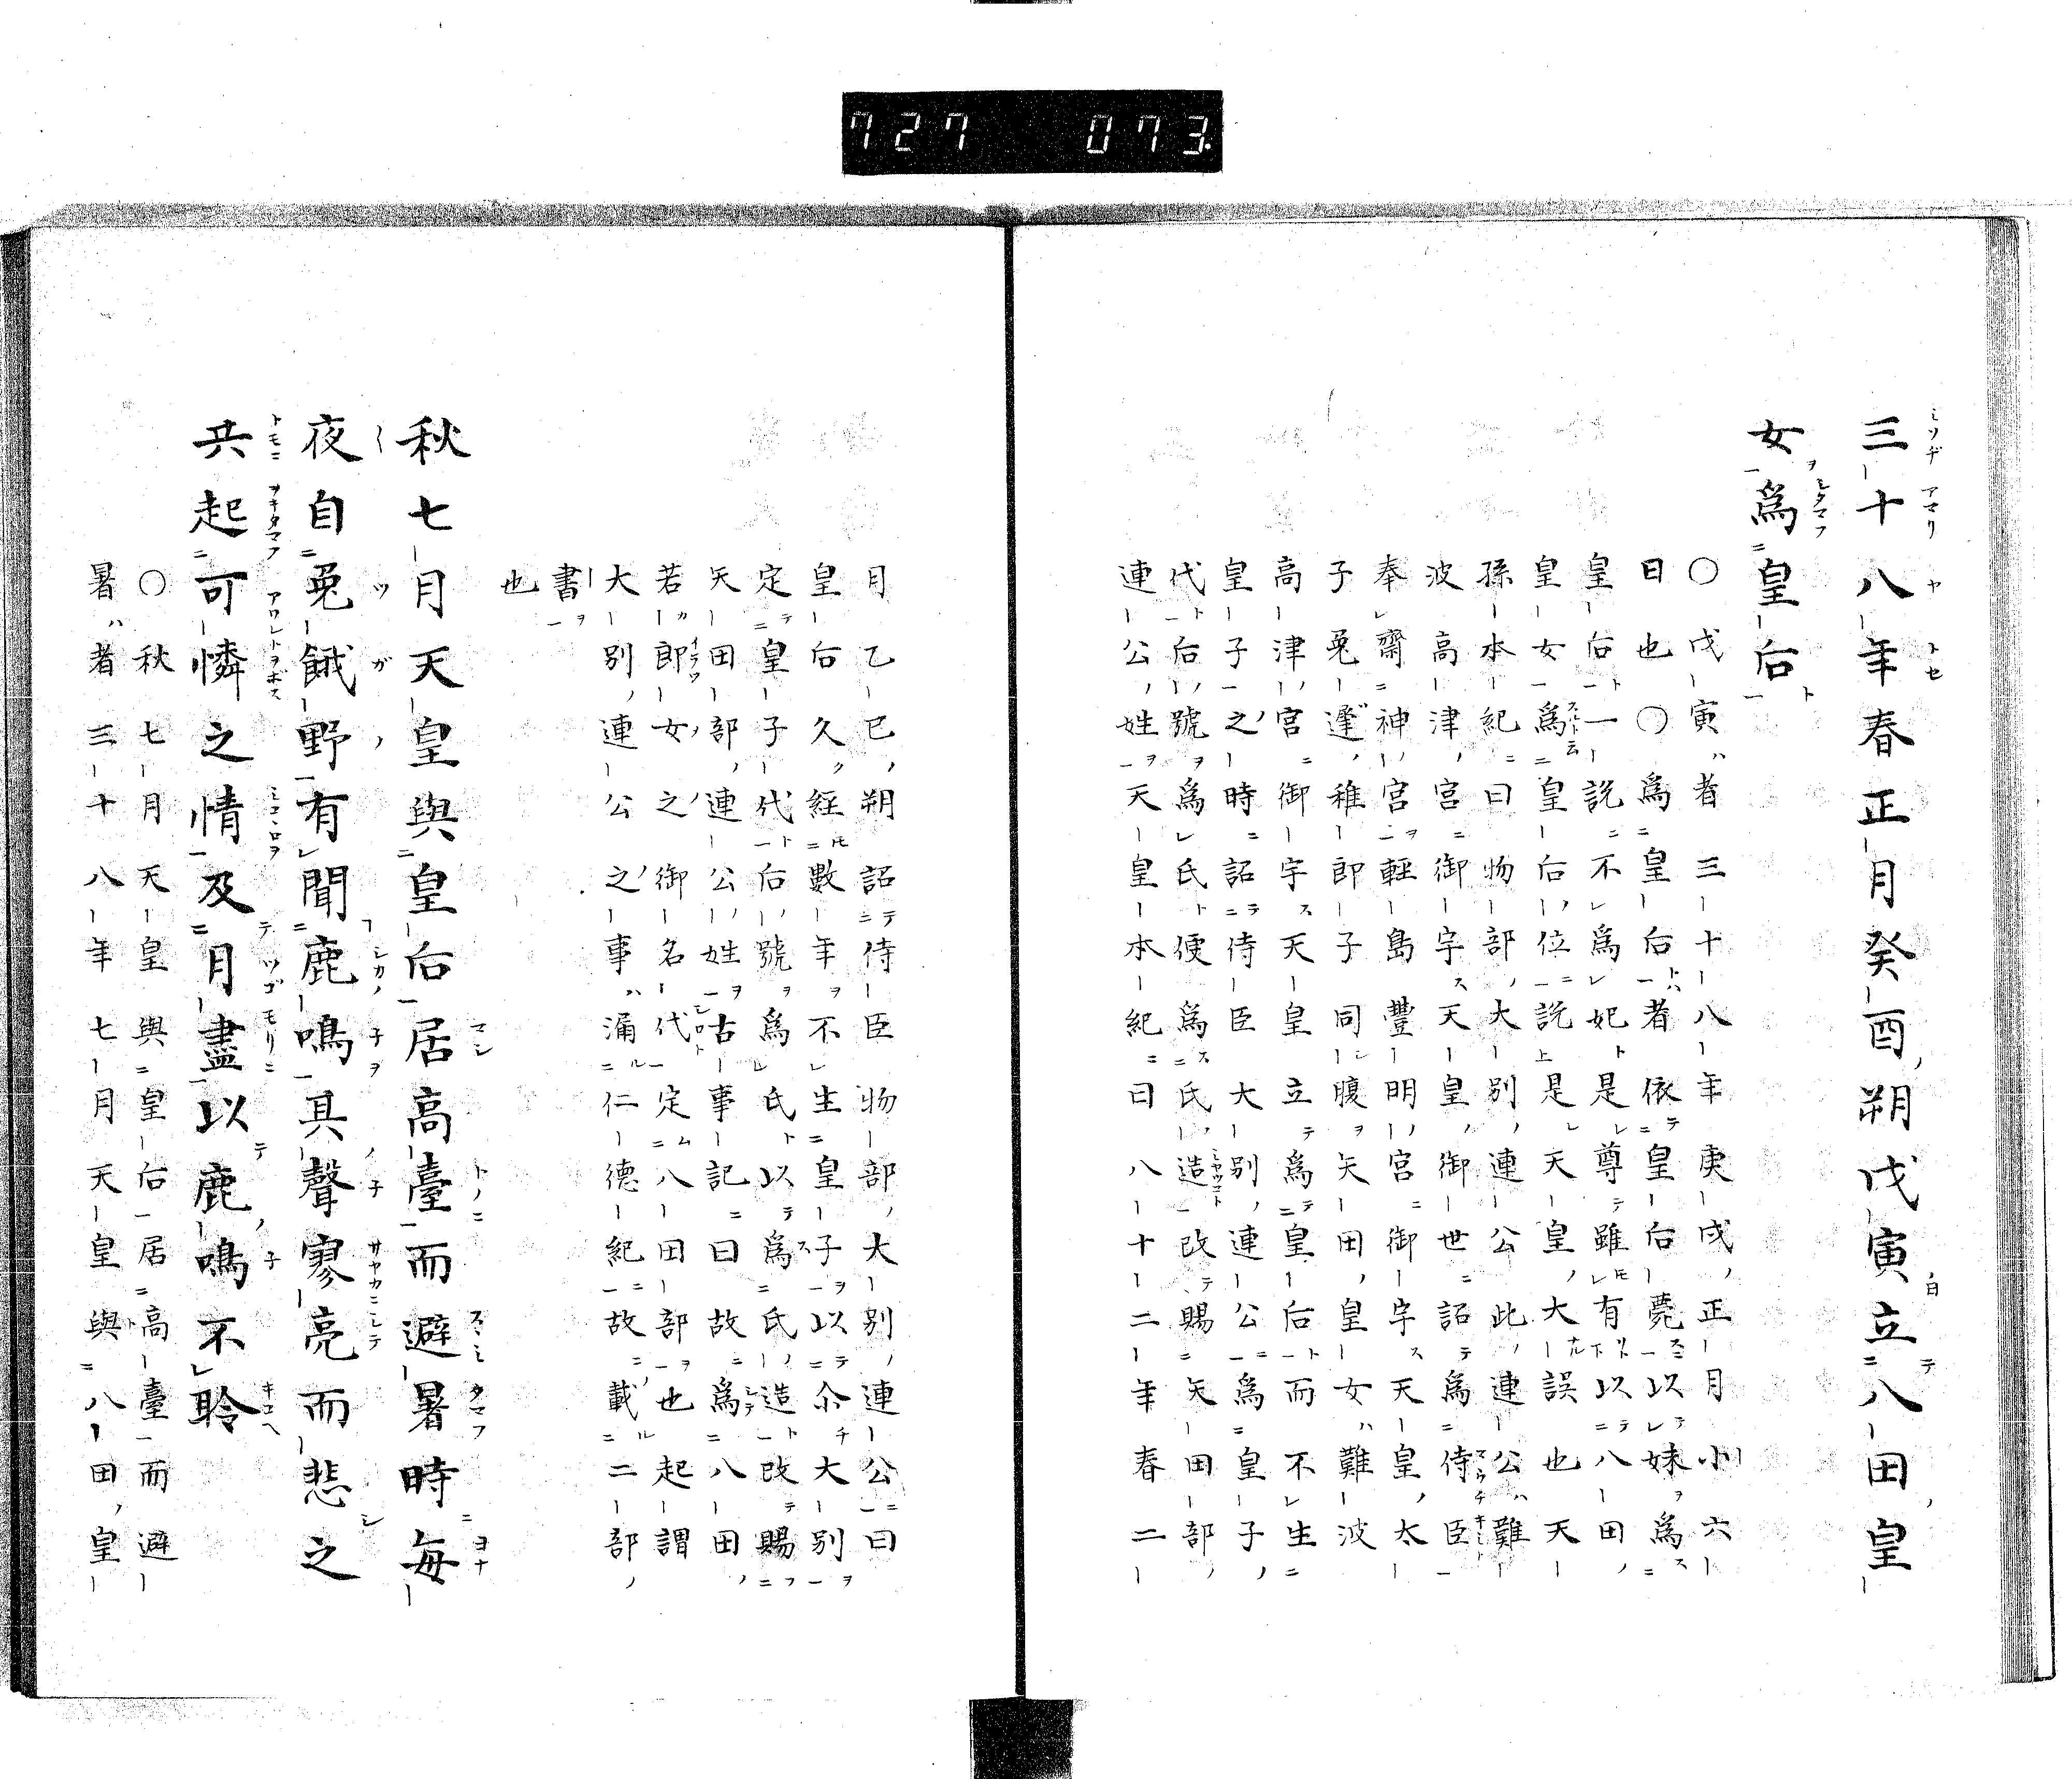 727 073
三十八年春正月癸酉朔戊寅立八田皇
女爲皇后
〇戊寅者三十八年庚戌正月小六
日也〇爲皇后者依皇后薨以妹爲
皇后一説不爲妃是尊雖有以八田
皇女爲皇后位説是天皇大誤也天
孫本紀曰物部大別連公此連公難
波高津宮御宇天皇御世詔爲侍臣
奉齋神宮輕島豐明宮御宇天皇太
子菟道稚郎子同腹矢田皇女難波
高津宮御宇天皇立爲皇后而不生
皇子之時詔侍臣大別連公爲皇子
代后號爲氏便爲氏造改賜矢田部
連公姓天皇本紀曰八十二年春二
月乙巳朔詔侍臣物部大別連公曰
皇后久經數年不生皇子以尒大別
定皇子代后號爲氏以爲氏造改賜
矢田部連公姓古事記曰故爲八田
若郎女之御名代定八田部也起謂
大別連公之事漏仁德紀故載二部
書
也
秋七月天皇與皇后居高臺而避暑時毎
夜自菟餓野有聞鹿鳴其聲寥亮而悲之
共起可憐之情及月盡以鹿鳴不聆
〇秋七月天皇與皇后居高臺而避
暑者三十八年七月天皇與八田皇